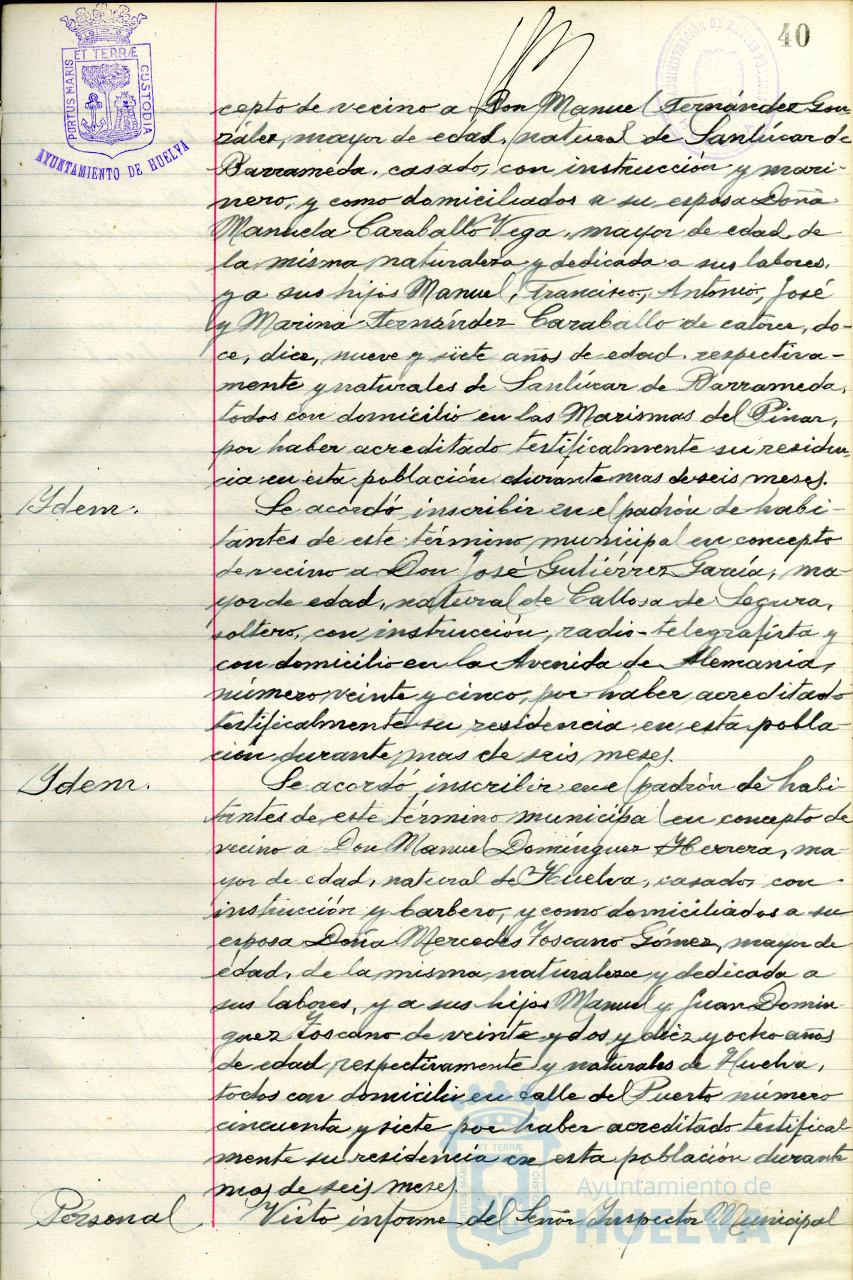 40
PORTUS MARIS ET TERRÆ CUSTODIA
AYUNTAMIENTO DE HUELVA
cepto de vecino a Don Manuel Fernández Gon-
zález, mayor de edad, natural de Sanlúcar de
Barrameda, casado, con instrucción y mari-
nero, y como domiciliados a su esposa Doña
Manuela Caraballo Vega, mayor de edad, de
la misma naturaleza y dedicada a sus labores,
y a sus hijos Manuel, Francisco, Antonio, José
y Marina Fernández Caraballo de catorce, do-
ce, diez, nueve y siete años de edad respectiva-
mente y naturales de Sanlúcar de Barrameda,
todos con domicilio en las Marismas del Pinar,
por haber acreditado testificalmente su residen-
cia en esta población durante mas de seis meses.
Ydem.
Se acordó inscribir en el padrón de habi-
tantes de este término municipal en concepto
de vecino a Don José Gutiérrez García, ma-
yor de edad, natural de Callosa de Segura,
soltero, con instrucción, radio-telegrafista y
con domicilio en la Avenida de Alemania,
número veinte y cinco, por haber acreditado
testificalmente su residencia en esta pobla-
ción durante mas de seis meses.
Ydem.
Se acordó inscribir en el padrón de habi-
tantes de este término municipal en concepto de
vecino a Don Manuel Domínguez Herrera, ma-
yor de edad, natural de Huelva, casado, con
instrucción y barbero, y como domiciliados a su
esposa Doña Mercedes Toscano Gómez, mayor de
edad, de la misma naturaleza y dedicada a
sus labores, y a sus hijos Manuel y Juan Domin-
guez Toscano de veinte y dos y diez y ocho años
de edad respectivamente y naturales de Huelva,
todos con domicilio en calle del Puerto número
cincuenta y siete por haber acreditado testifical
mente su residencia en esta población durante
mas de seis meses.
Personal
Visto informe del Señor Inspector Municipal
Ayuntamiento de
HUELVA